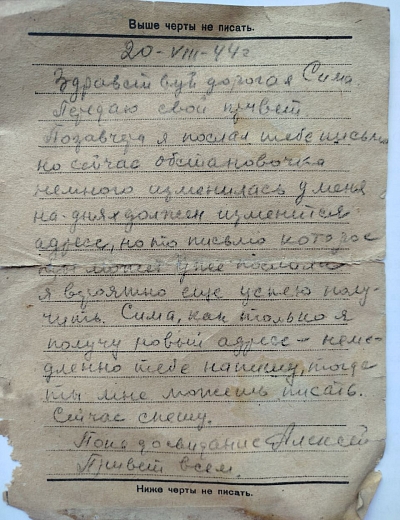 Выше черты не писать.
20-VIII-44 г
Здравствуй дорогая Сима.
Передаю свой привет.
Позавчера я послал тебе письмо
но сейчас обстановочка
немного изменилась у меня
на-днях должен изменится
адресс, но то письмо которое
ты может уже послала
я вероятно еще успею полу-
чить. Сима, как только я
получу новый адресс - неме-
дленно тебе напишу, тогда
ты мне можешь писать.
Сейчас спешу.
Пока досвидание Алексей
Привет всем.
Ниже черты не писать.